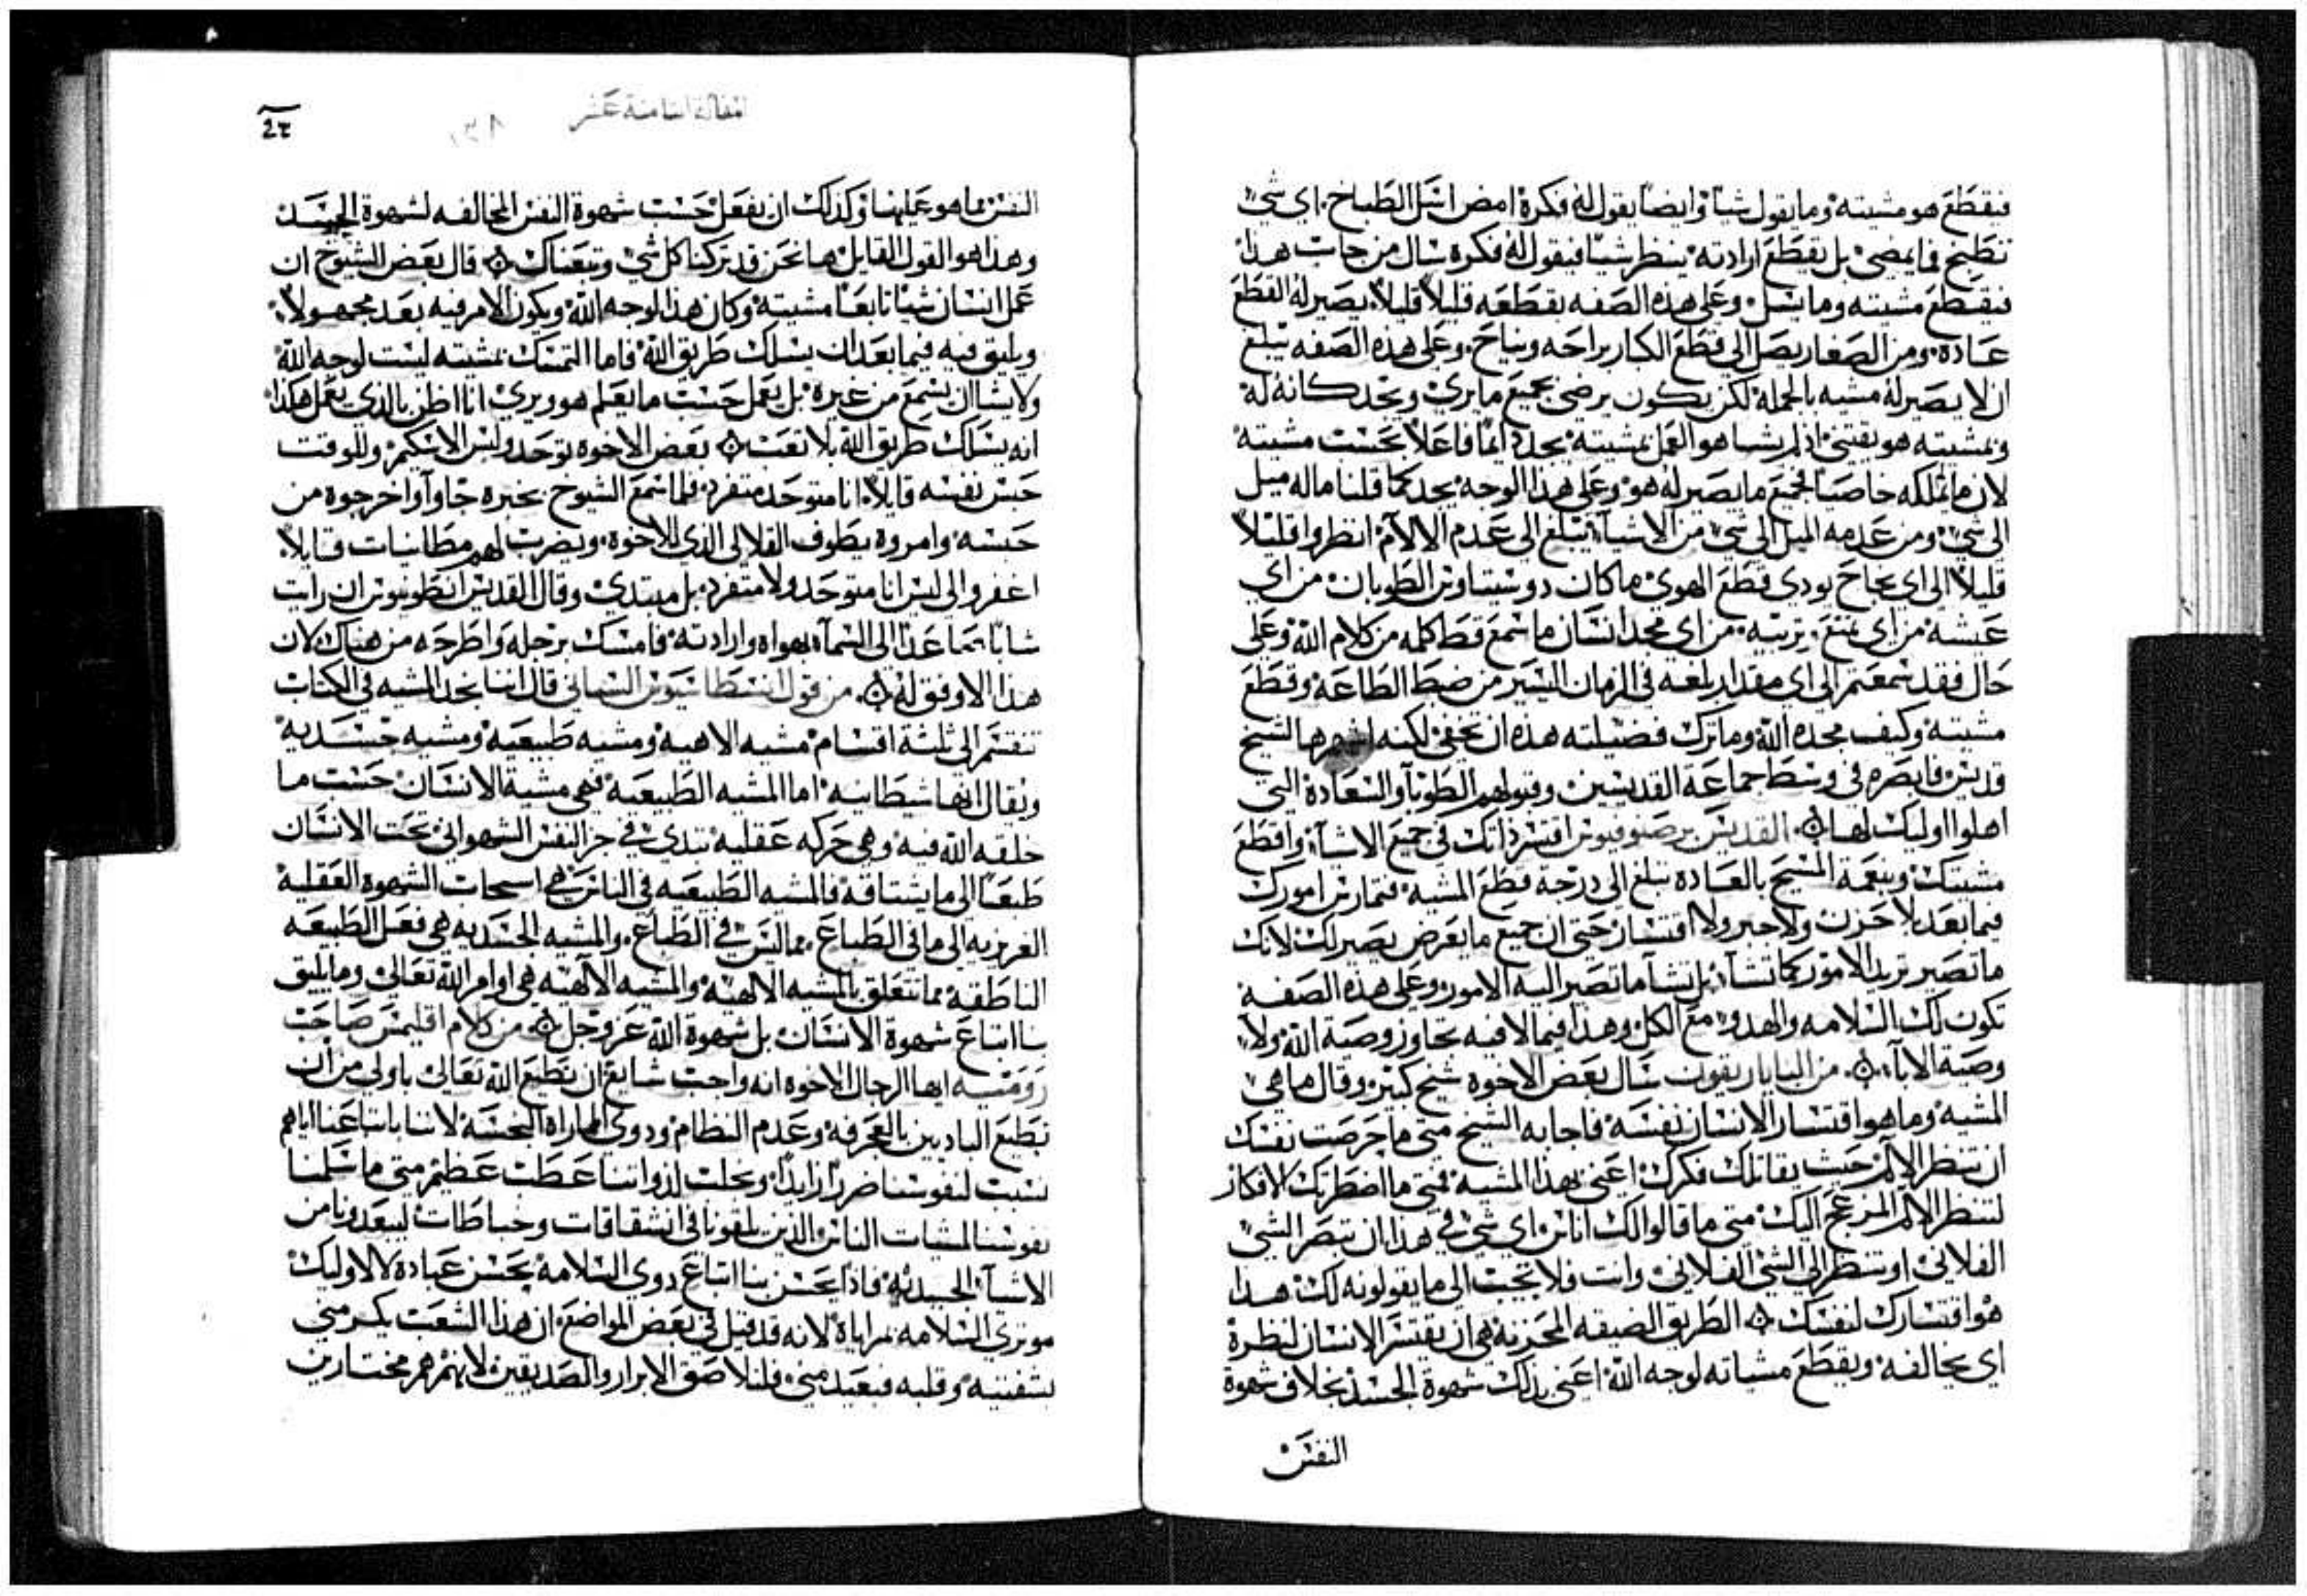 فيقطع هو مشيته وما يقول شياً وايضاً يقول له فكره امض اسَل الطباخ. اي شي
تطبخ فما يمضي بل يقطع ارادته ينظر شيا فيقول له فكره سال من جاب هذا
فيقطع مشيته وما يسل وعلى هذه الصفه يقطعه قليلاً قليلاً. يصير له القطع
عاده. ومن الصغار يصل الى قطع الكبار براحه ونياح. وعلى هذه الصفه يبلغ
ان لا يصير له مشيه بالجمله لكن يكون يرضى بجميع ما يرى ويجد كانه له
وبمشيته هو يقتني اذ لم يشا هو العمل بمشيته يجد دايماً فاعلاً بحسب مشيته
لان ما تملكه خاصياً فجميع ما يصير له هو وعلى هذا الوجه يجد كما قلنا ماله ميل
الى شي ومن عدمه الميل الى شي من الاشيآ يبلغ الى عدم الالام انظروا قليلاً
قليلاً الى اي نجاح يودي قطع الهوى ما كان دوسيتاوس الطوبان من اي
عيشه من اي تمتع وتربيه من اي مجد انسان ما سمع قط كلمه من كلام الله وعلى
حال فقد سمعتم الى اي مقدار بلغه في الزمان اليسير من ضبط الطاعه وقطع
مشيته وكيف مجده الله وما ترك فضيلته هذه ان تخفى لكنه اشهرها لشيخ
قديس فابصره في وسط جماعة القديسين وقبولهم الطوبا والسعاده التي
اهلوا اوليك لها ۞ القديس برصنوفيوس اقتسر ذاتك في جميع الاشيآ واقطع
مشيتك وبنعمة المسيح بالعاده تبلغ الى درجة قطع المشيه فتمارس امورك
فيما بعد بلا حزن ولا حبر ولا اقتسار حتى ان جميع ما يعرض يصير لك لانك
ما تصير تريد الامور كما تشآ بل تشآ ما تصير اليه الامور وعلى هذه الصفه
تكون لك السلامه والهدو مع الكل وهذا فيما لا فيه تجاوز وصية الله ولا
وصية الابآ ۞ من الباياريقون سال بعض الاخوه شيخ كبير وقال ما هي
المشيه وما هو اقتسار الانسان نفسه فاجابه الشيخ متى ما حرصت نفسك
ان تنظر الالم حيث يقاتلك فكرك اعني بهذا المشيه فمتى ما اضطرتك الافكار
لتنظر الالم المزعج اليك متى ما قالوا لك اناس اي شي في هذا ان تبصر الشي
الفلاني او تنظر الى الشي الفلاني وانت فلا تجيب الى ما يقولونه لك هذا
هو اقتسارك لنفسك ۞ الطريق الضيقه المحزنه هي ان يقتسر الانسان لنظره
اي يخالفه ويقطع مشياته لوجه الله اعني بذلك شهوة الجسد بخلاف شهوة
النفس
المقالة الثامنة عشر
١٣٨
النفس ما هو عليها وكذلك ان يفعل حسب شهوة النفس المخالفه لشهوة الجسد
وهذا هو القول القايل ها نحن قد تركنا كل شي وتبعناك ۞ قال بعض الشيوخ ان
عمل انسان شياً تابعاً مشيته وكان هذا لوجه الله ويكون الامر فيه بعد مجهولاً
ويليق فيه فيما بعد ان يسلك طريق الله فاما التمسك بمشيته ليست لوجه الله
ولا يشا ان يسمع من غيره بل يعمل حسب ما يعلم هو ويرى انا اظن بالذي يعمل هكذا
انه يسلك طريق الله بلا تعب ۞ بعض الاخوه توحد ولبس الاسكيم وللوقت
حبس نفسه قايلاً انا متوحد متفرد. فلما سمع الشيوخ بخبره جاوآ واخرجوه من
حبسه وامروه يطوف القلالي الذي للاخوه ويضرب لهم مطانيات قايلاً.
اغفروا لي ليس انا متوحد ولا متفرد بل مبتدي وقال القديس انطونيوس ان رايت
شاباً يتصاعد الى السمآ بهواه وارادته فامسك برجله واطرحه من هناك لان
هذا الاوفق له ۞ من قول انسطاسيوس السيناني قال اننا نجد المشيه في الكتاب
تنقسم الى ثلثة اقسام مشيه الاهيه ومشيه طبيعيه ومشيه جسديه
ويقال انها شيطانيه اما المشيه الطبيعيه فهي مشية الانسان حسب ما
خلقه الله فيه وهي حركه عقليه تبتدي في جز النفس الشهواني تحت الانسان
طبعاً الى ما يشتاقه فالمشيه الطبيعيه في الناس هي اسبحاث الشهوه العقليه
الغريزيه الى ما في الطباع مما ليس في الطباع والمشيه الجسديه هي فعل الطبيعه
الناطقه مما تتعلق بالمشيه الالهيه والمشيه الآلهيه هي اوامر الله تعالى وما يليق
بنا اتباع شهوة الانسان بل شهوة الله عز وجل ۞ من كلام اقليمس صاحب
روميه ايها الرجال الاخوه انه واجب شايع ان نطيع الله تعالى باولي من ان
نطيع الباديين بالعجرفه وعدم النظام وذوي المماراة النجسه لاننا باتباعنا اياهم
نسبب لنفوسنا ضرراً زايداً ونجلب لذواتنا عطب عظيم متى ما سلمنا
نفوسنا لمشيات الناس الذين يلقونا في انشقاقات وخباطات ليبعدونا من
الاشيآ الحسنه فاذا يحسن بنا اتباع ذوي السلامه بحسن عباده لا لاوليك
موثري السلامه بمراياه لانه قد قيل في بعض المواضع ان هذا الشعب يكرمني
بشفتيه وقلبه فبعيد مني فلنلاصق الابرار والصديقين لانهم هم مختارين